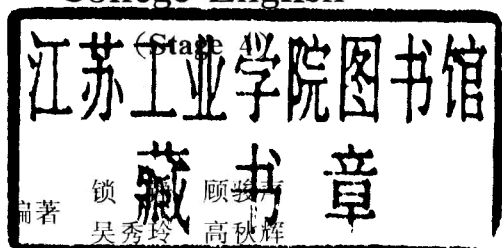 College English
(Stage 4)
江苏工业学院图书馆
藏书章
锁 顾骏
编著
吴秀玲 高秋辉